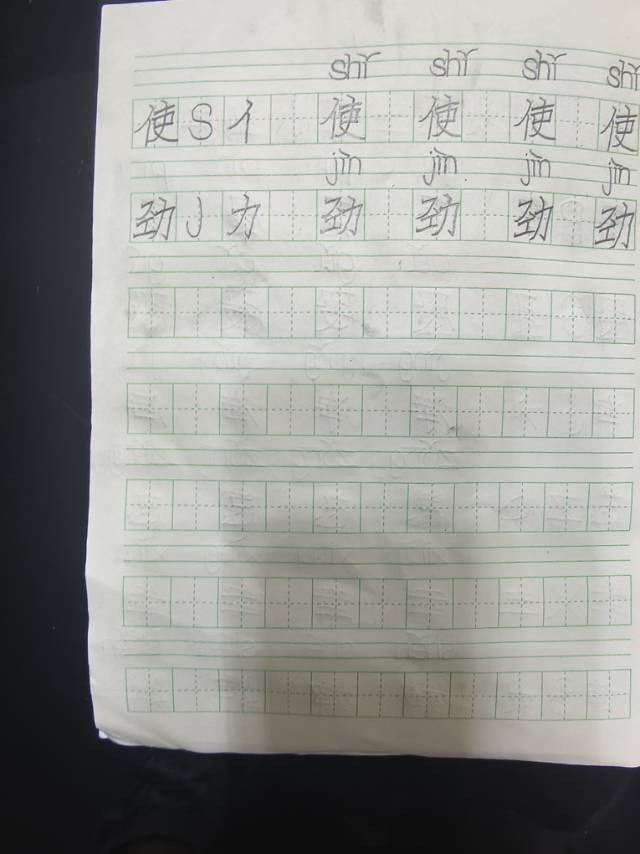 shǐ shǐ shǐ shǐ
使 S 亻 使 使 使 使
jìn jìn jìn jìn
劲 J 力 劲 劲 劲 劲